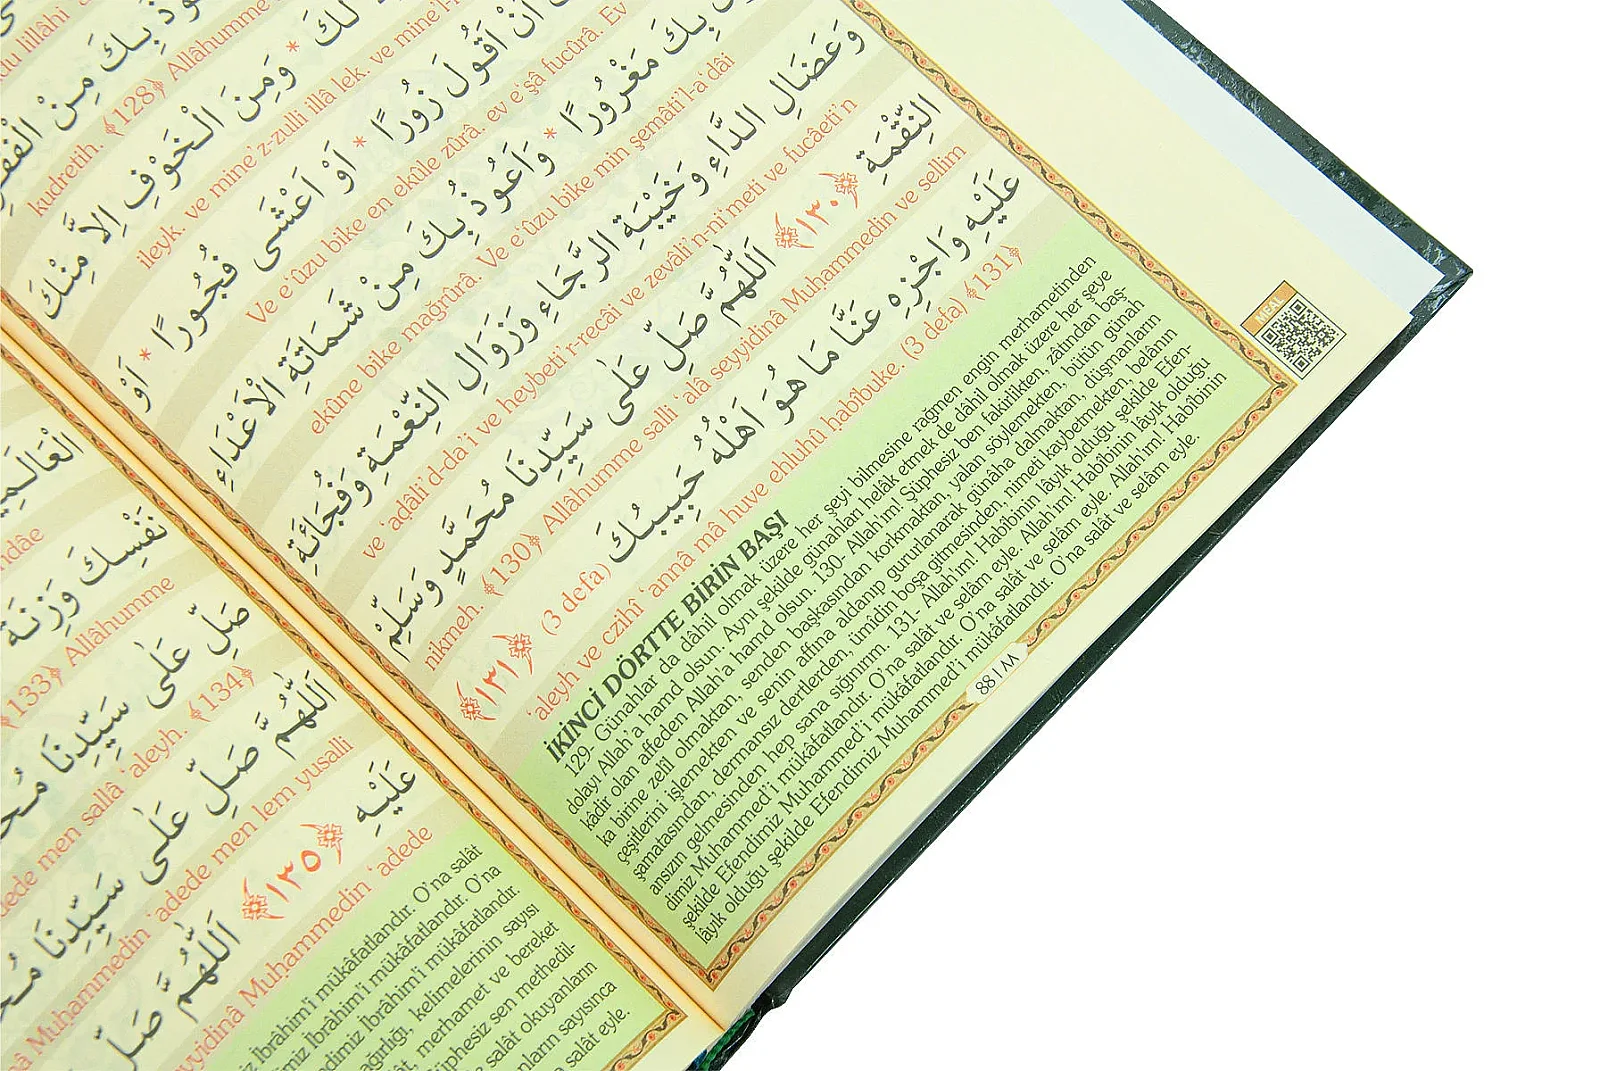 ذُ بِكَ مِنْ الْفَقْرِ
kudretih. ﴾128﴿ Allâhumme
لَكَ * وَمِنَ الْخَوْفِ اِلاَّ مِنْكَ
ileyk. ve mine'z-zulli illâ lek. ve mine'l-
اَنْ اَقُولَ زُورًا * اَوْ اَعْشَى فُجُورًا * اَوْ
Ve e'ûzu bike en ekûle zûra. ev e'şâ fucûrâ. Ev
بِكَ مَغْرُورًا * وَاَعُوذُ بِكَ مِنْ شَمَاتَةِ الْاَعْدَاءِ
ekûne bike mağrûrâ. Ve e'ûzu bike min şemâti'l-a'dâi
وَعَضَالِ الدَّاءِ وَخَيْبَةِ الرَّجَاءِ وَزَوَالِ النِّعْمَةِ وَفُجَائَةِ
ve 'aḍâli'd-da'i ve heybeti'r-recâi ve zevâli'n-ni'meti ve fucâeti'n
النِّقْمَةِ ﴿١٣٠﴾ اَللّٰهُمَّ صَلِّ عَلٰى سَيِّدِنَا مُحَمَّدٍ وَسَلِّمْ
nikmeh. ﴾130﴿ Allâhumme salli 'alâ seyyidinâ Muhammedin ve sellim
عَلَيْهِ وَاجْزِهِ عَنَّا مَا هُوَ اَهْلُهُ حَبِيبُكَ (3 defa) ﴿١٣١﴾
'aleyh ve czihî 'annâ mâ huve ehluhû habîbuke. (3 defa) ﴾131﴿
İKİNCİ DÖRTTE BİRİN BAŞI
129- Günahlar da dâhil olmak üzere her şeyi bilmesine rağmen engin merhametinden
dolayı Allah'a hamd olsun. Aynı şekilde günahları helâk etmek de dâhil olmak üzere her şeye
kâdir olan affeden Allah'a hamd olsun. 130. Allah'ım! Şüphesiz ben fakirlikten, zâtından baş-
ka birine zelil olmaktan, senden başkasından korkmaktan, yalan söylemekten, bütün günah
çeşitlerini işlemekten ve senin affına aldanıp gururlanarak günaha dalmaktan, düşmanların
şamatasından, dermansız dertlerden, ümidin boşa gitmesinden, nimeti kaybetmekten, belânın
ansızın gelmesinden hep sana sığınırım. 131- Allah'ım! Habîbinin lâyık olduğu şekilde Efen-
dimiz Muhammed'i mükâfatlandır. O'na salât ve selâm eyle. Allah'ım! Habîbinin lâyık olduğu
şekilde Efendimiz Muhammed'i mükâfatlandır. O'na salât ve selâm eyle. Allah'ım! Habîbinin
lâyık olduğu şekilde Efendimiz Muhammed'i mükâfatlandır. O'na salât ve selâm eyle.
88 / ٨٨
MEAL
الْعَالَمِ
ndâe
نَفْسِكَ وَزِنَةَ
﴾133﴿ Allâhumme
صَلِّ عَلٰى سَيِّدِنَا مُحَ
adede men sallâ 'aleyh. ﴾134﴿
اَللّٰهُمَّ صَلِّ عَلٰى سَيِّدِنَا مُحَ
â Muhammedin 'adede men lem yusalli
عَلَيْهِ ﴿١٣٥﴾ اَللّٰهُمَّ صَلِّ
yyidinâ Muhammedin 'adede
iz İbrâhim'i mükâfatlandır. O'na salât
imiz İbrâhim'i mükâfatlandır. O'na
dimiz İbrâhim'i mükâfatlandır.
ağırlığı, kelimelerinin sayısı
lât, merhamet ve bereket
Şüphesiz sen methedil-
salât okuyanların
nların sayısınca
salât eyle.